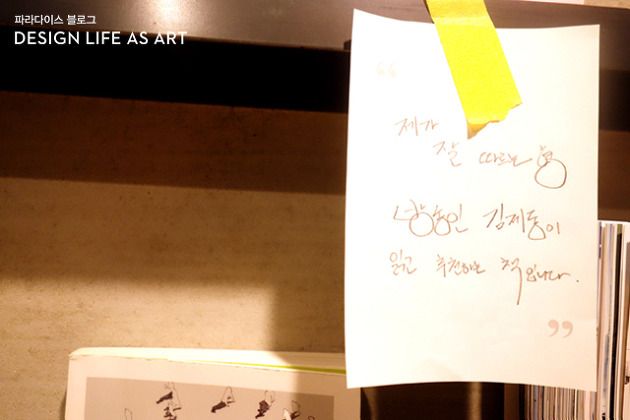 파라다이스 블로그
DESIGN LIFE AS ART
“
제가
잘 따르는 형
방송인 김제동이
읽고 추천하는 책입니다.
”